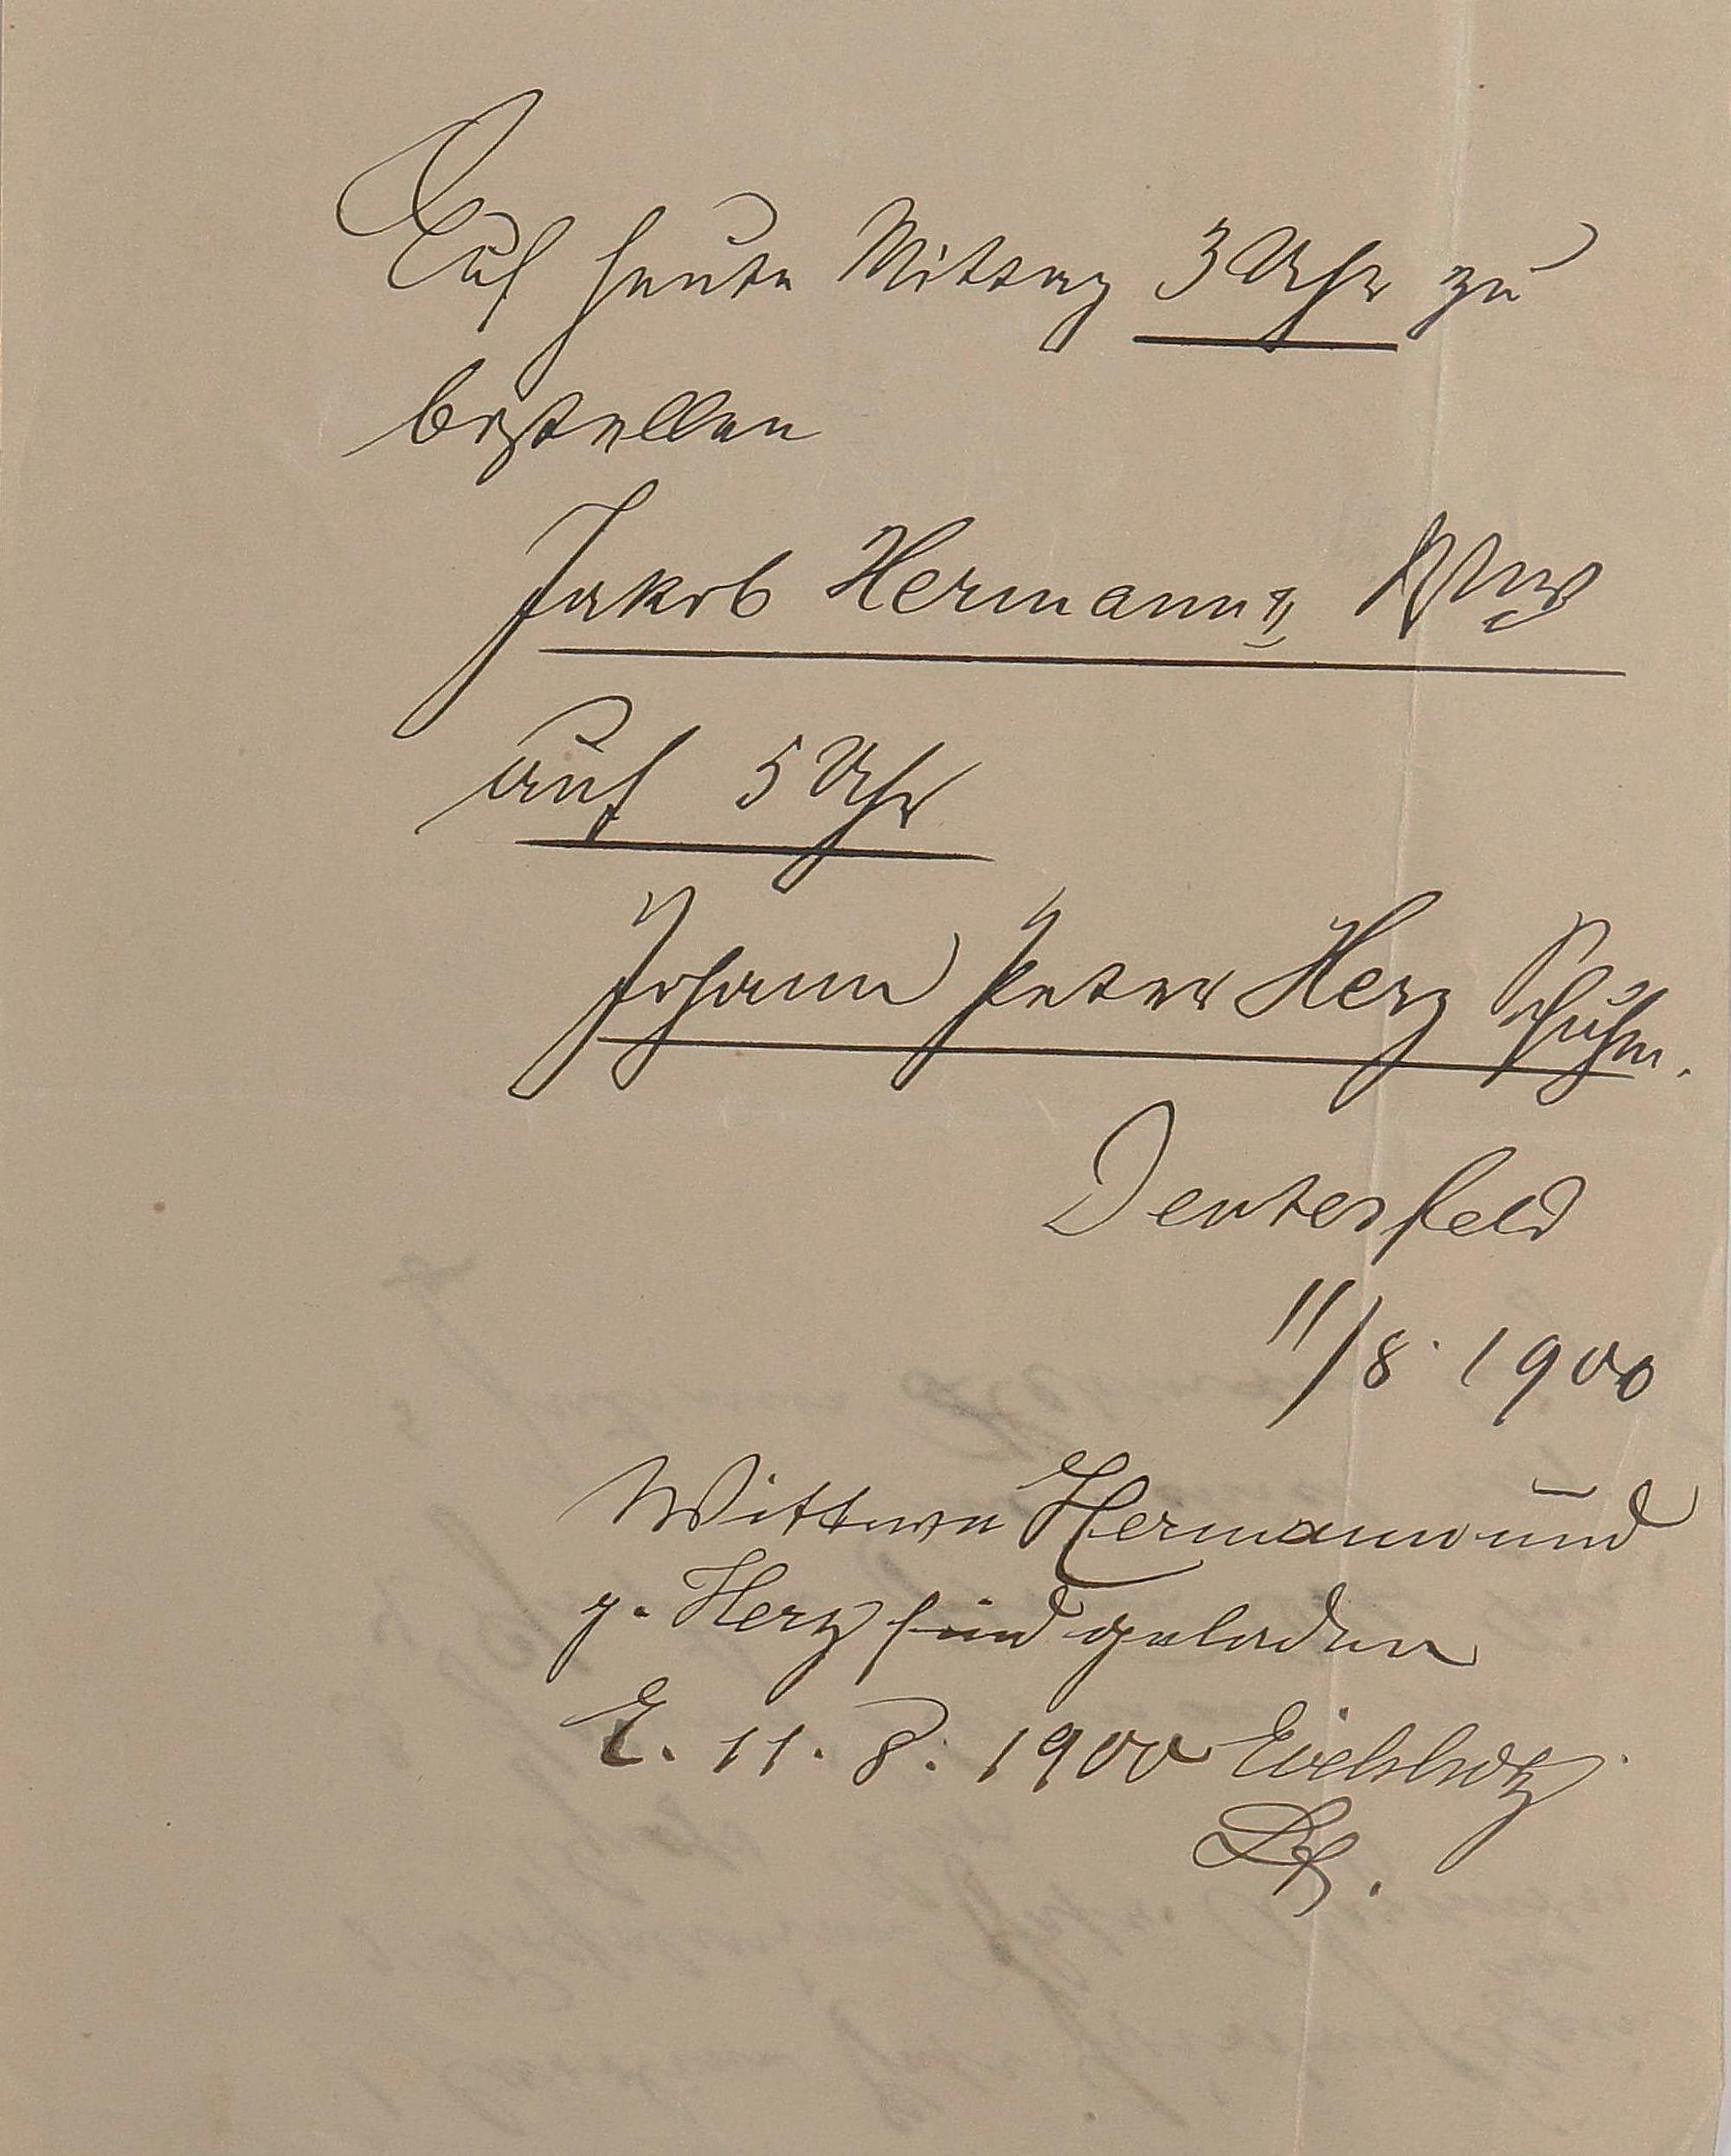 Auf heute Mittag 3 Uhr zu
bestellen
Jakob Hermann II, Wwe
auf 5 Uhr
Johann Peter Herz Schuhm.
Deutesfeld
11/8. 1900
Wittwe Hermann und
p. Herz sind geladen
E. 11. 8. 1900